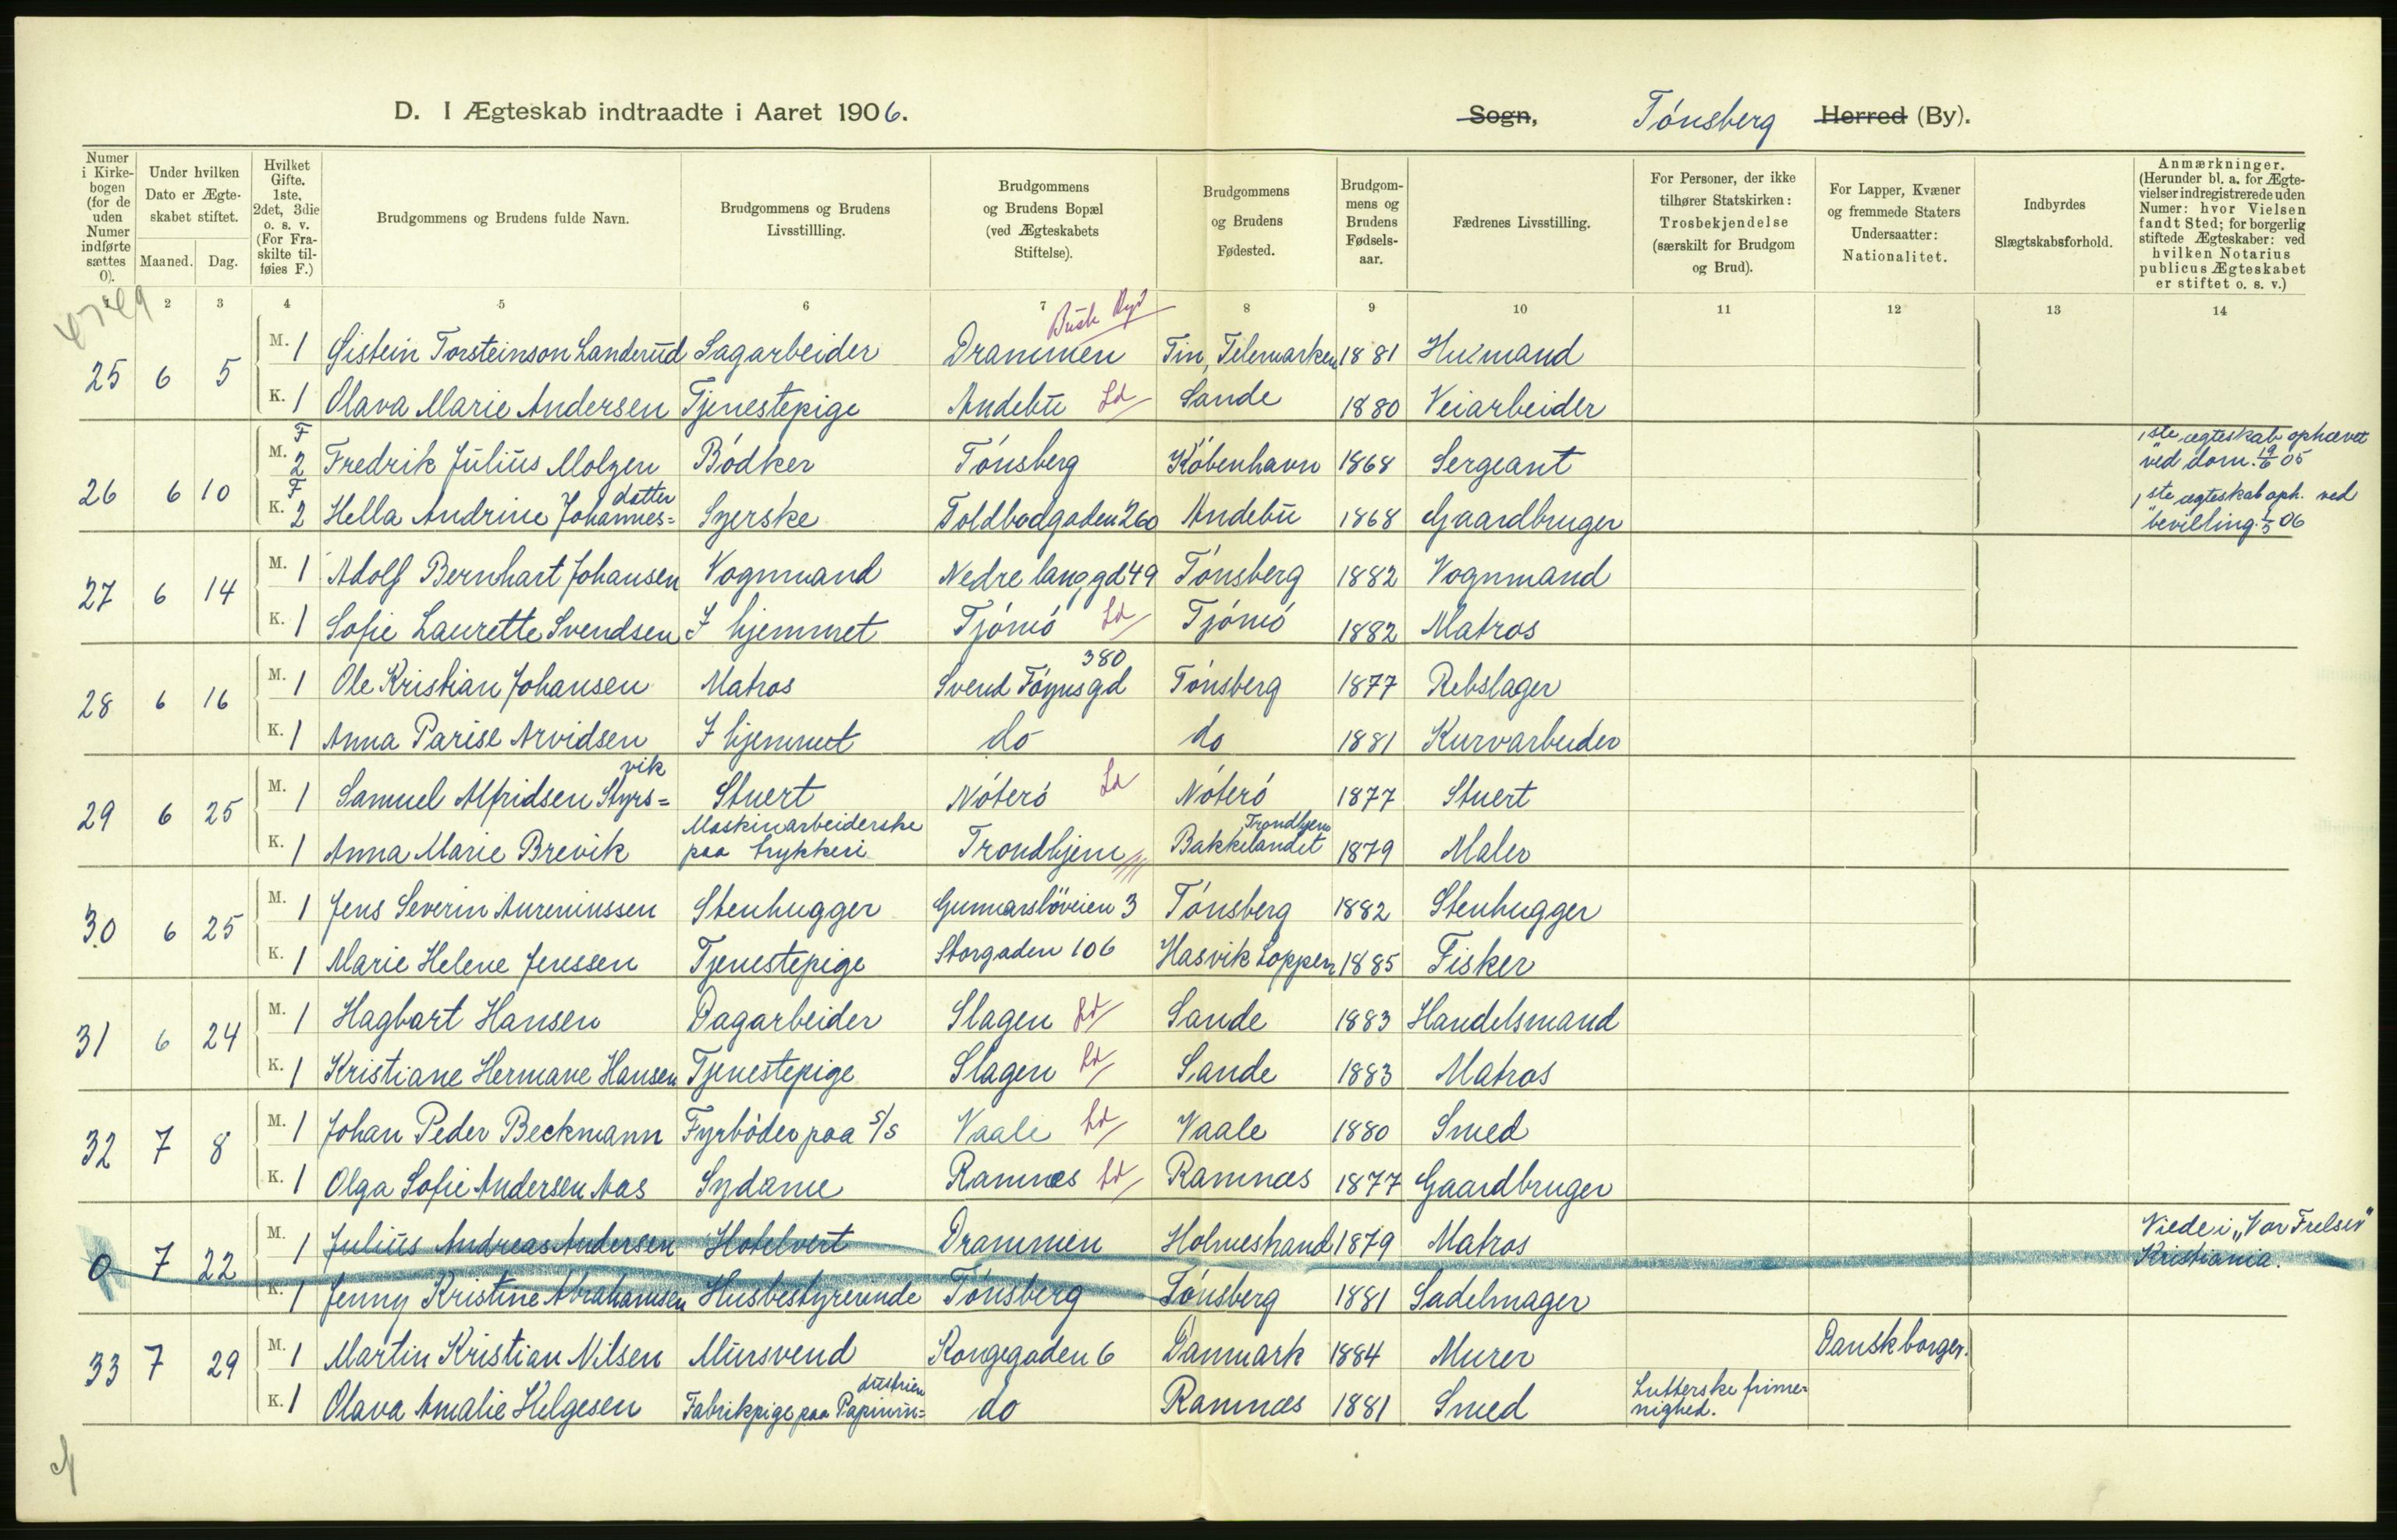 D. I Ægteskab indtraadte i Aaret 1906.
Sogn, Tönsberg Herred (By).
Numer i Kirkebogen (for de uden Numer indførte sættes 0).
Under hvilken Dato er Ægteskabet stiftet.
Maaned. Dag.
Hvilket Gifte. 1ste, 2det, 3die o. s. v. (For Fraskilte tilføies F.)
Brudgommens og Brudens fulde Navn.
Brudgommens og Brudens Livsstillling.
Brudgommens og Brudens Bopæl (ved Ægteskabets Stiftelse).
Brudgommens og Brudens Fødested.
Brudgommens og Brudens Fødselsaar.
Fædrenes Livsstilling.
For Personer, der ikke tilhører Statskirken: Trosbekjendelse (særskilt for Brudgom og Brud).
For Lapper, Kvæner og fremmede Staters Undersaatter: Nationalitet.
Indbyrdes Slægtskabsforhold.
Anmærkninger. (Herunder bl. a. for Ægtevielser indregistrerede uden Numer: hvor Vielsen fandt Sted; for borgerlig stiftede Ægteskaber: ved hvilken Notarius publicus Ægteskabet er stiftet o. s. v.)
2 3 4 5 6 7 8 9 10 11 12 13 14
25 6 5
M. 1 Øistein Torsteinson Landerud Sagarbeider Drammen Tin, Telemarken 1881 Husmand
K. 1 Olava Marie Andersen Tjenestepige Andebu Ld Sande 1880 Veiarbeider
26 6 10
M. F 2 Fredrik Julius Molzen Bödker Tönsberg Köbenhavn 1868 Sergeant 1ste ægteskab ophævet ved dom. 19/6 05
K. F 2 Hella Andrine Johannes=datter Syerske Toldbodgaden 26a Andebu 1868 Gaardbruger 1ste ægteskab oph. ved bevilling 1/5 06
27 6 14
M. 1 Adolf Bernhart Johansen Vognmand Nedre langgd 49 Tönsberg 1882 Vognmand
K. 1 Sofie Laurette Svendsen I hjemmet Tjömö Ld Tjömö 1882 Matros
28 6 16
M. 1 Ole Kristian Johansen Matros Svend Föynsgd 380 Tönsberg 1877 Rebslager
K. 1 Anna Parise Arvidsen I hjemmet do do 1881 Kurvarbeider
29 6 25
M. 1 Samuel Alfridsen Styrs=vik Stuert Nöterö Ld Nöterö 1877 Stuert
K. 1 Anna Marie Brevik Maskinarbeiderske paa trykkeri Trondhjem Bakkelandet Trondhjem 1879 Maler
30 6 25
M. 1 Jens Severin Aureniussen Stenhugger Gunnarsböveien 3 Tönsberg 1882 Stenhugger
K. 1 Marie Helene Jenssen Tjenestepige Storgaden 106 Hasvik Loppen 1885 Fisker
31 6 24
M. 1 Hagbart Hansen Dagarbeider Slagen Ld Sande 1883 Handelsmand
K. 1 Kristiane Hermane Hansen Tjenestepige Slagen Ld Sande 1883 Matros
32 7 8
M. 1 Johan Peder Beckmann Fyrböder paa s/s Vaale Ld Vaale 1880 Smed
K. 1 Olga Sofie Andersen Aas Sydame Ramnæs Ld Ramnæs 1877 Gaardbruger
0 7 22
M. 1 Julius Andreas Andersen Hotelvert Drammen Holmestrand 1879 Matros Viede i "Vor Frelser" Kristiania.
K. 1 Jenny Kristine Abrahamsen Husbestyrerinde Tönsberg Tönsberg 1881 Sadelmager
33 7 29
M. 1 Martin Kristian Nilsen Mursvend Kongegaden 6 Danmark 1884 Murer Dansk borger.
K. 1 Olava Amalie Helgesen Fabrikpige paa Papirin=dustrien do Ramnæs 1881 Smed Lutterske frime=nighed.